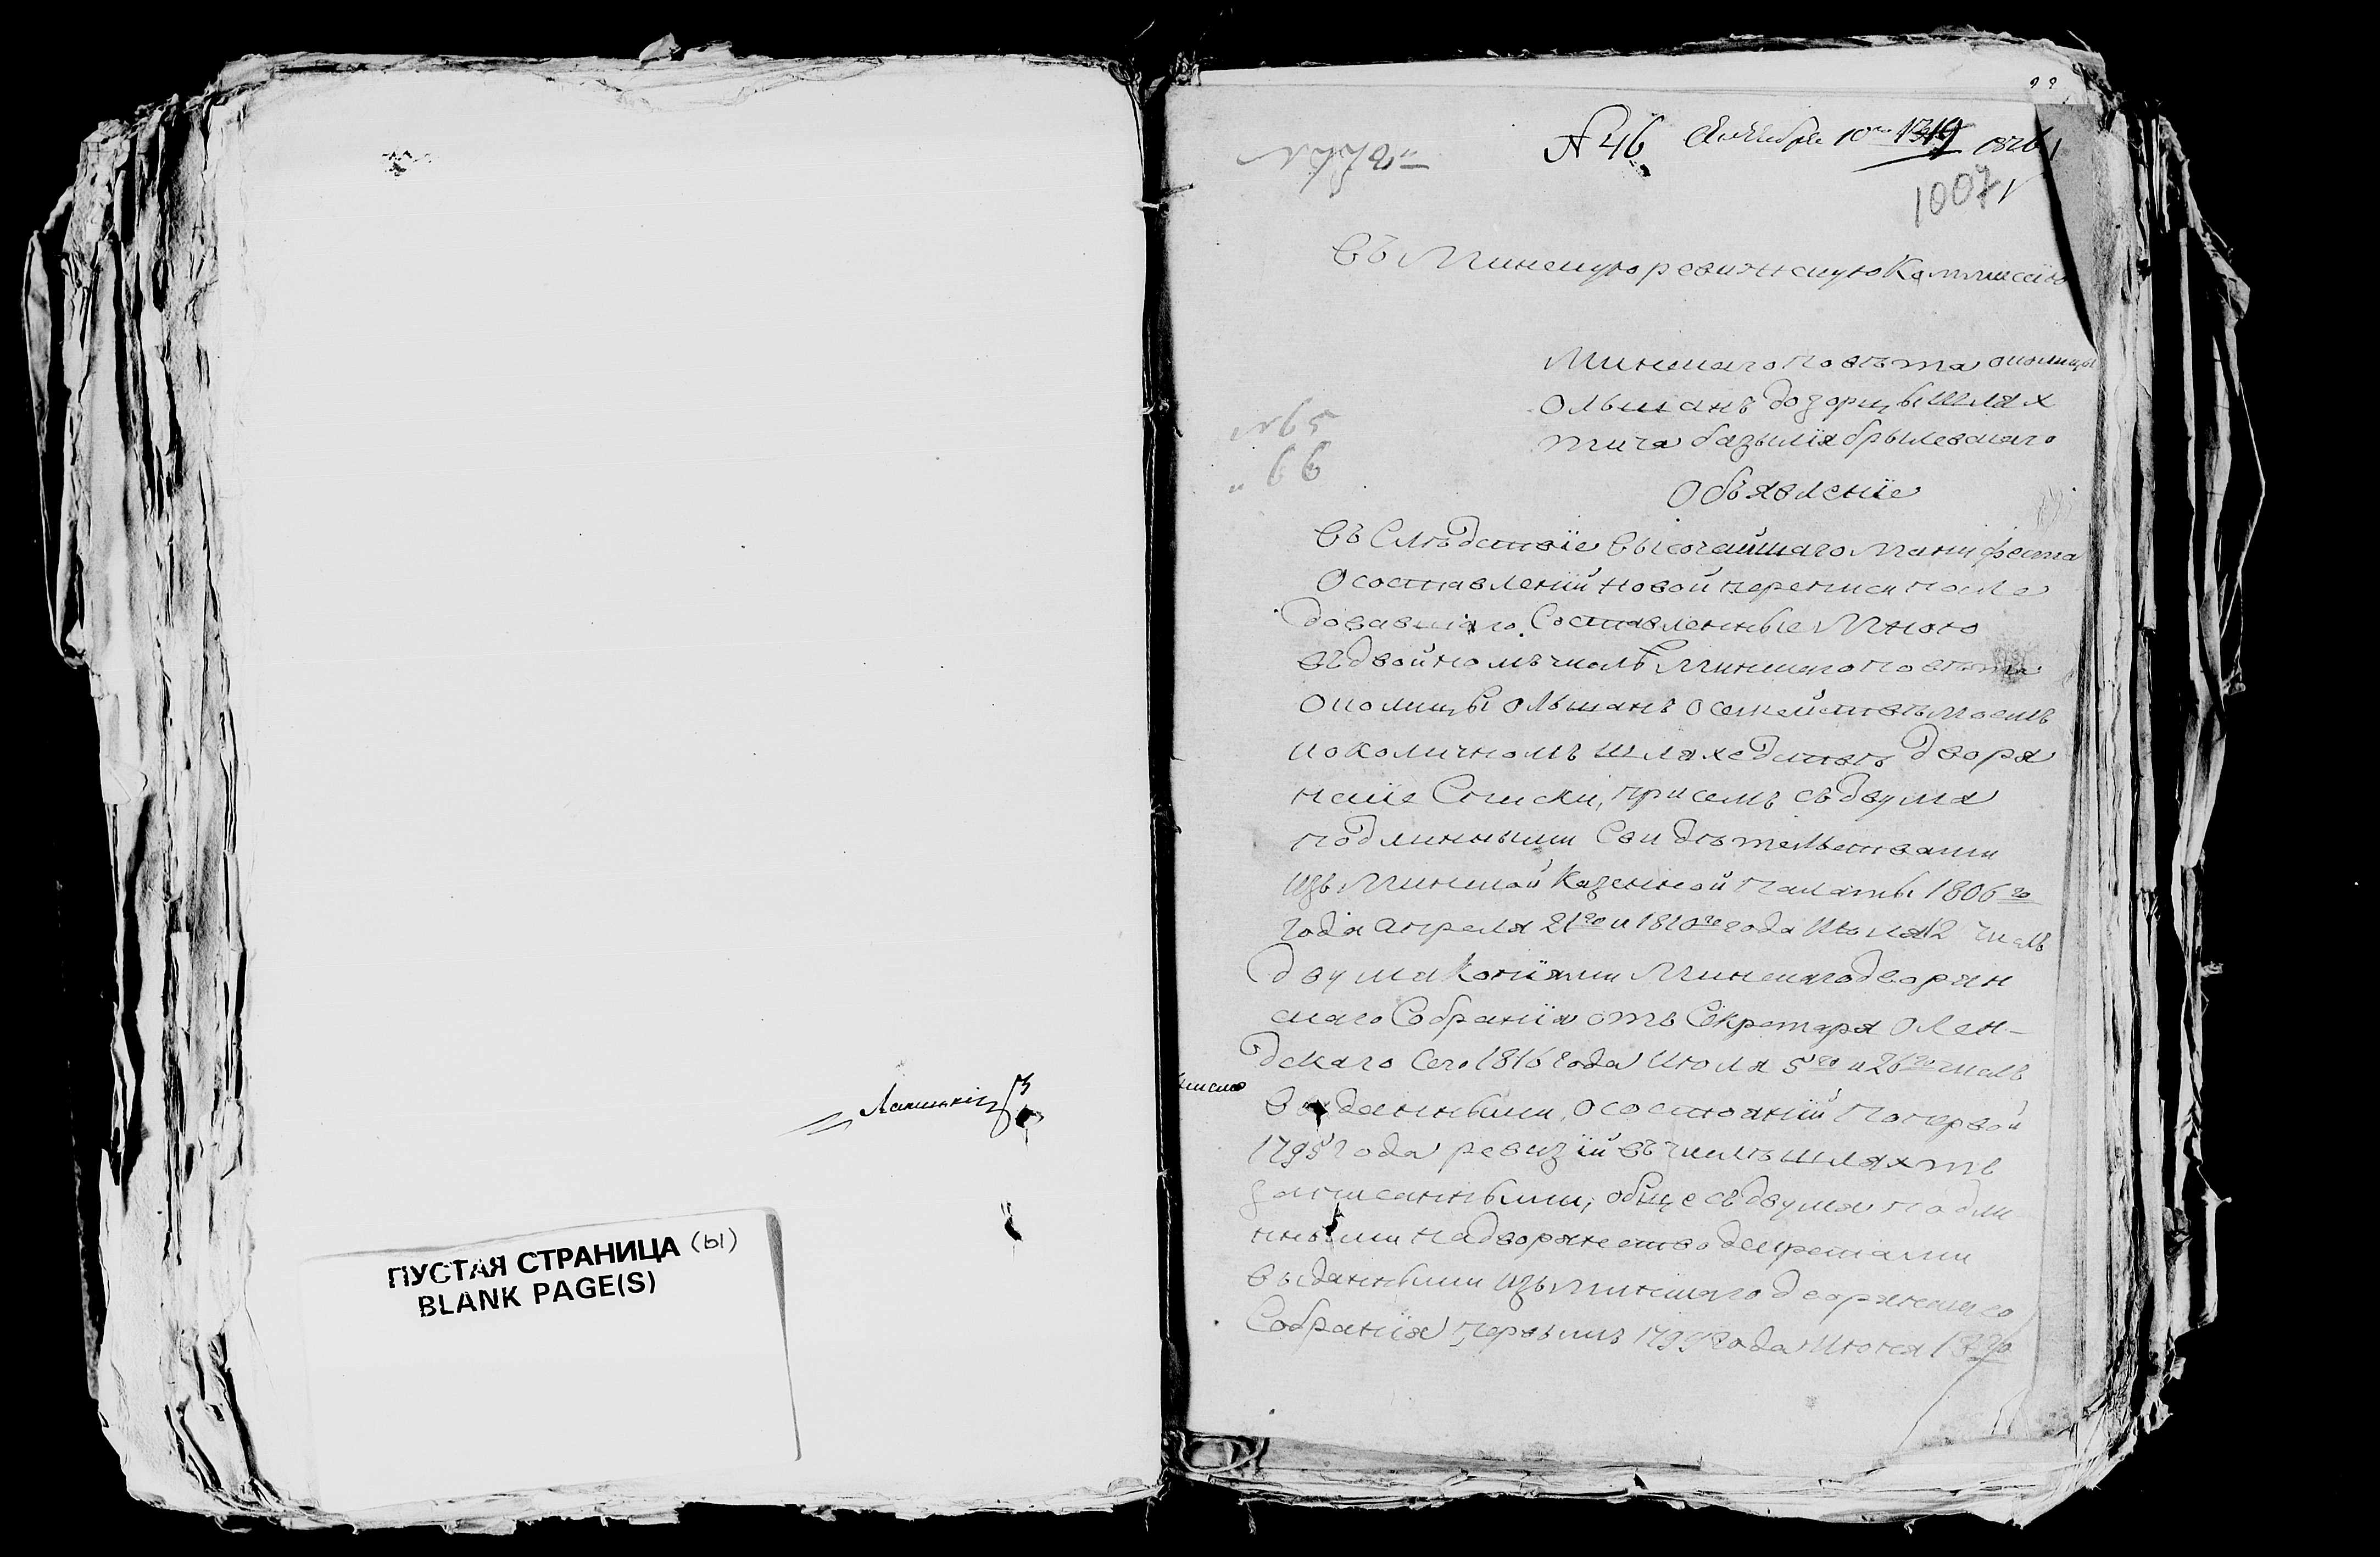 Лапицкій
ПУСТАЯ СТРАНИЦА (ы)
BLANK PAGE(S)
№ 46 10го 1819
1007
Въ Минскую ревижскую Коммиссію
Минскаго повѣта околицы
Ольшанъ дозорцы шлях
тича базылія брылевскаго
№ 65
" 66
Объявленіе
Въ Слѣдствіе высочайшаго манифеста
О составленій новой переписи после
довавшаго. Составленные Мною
въ двойномъ числѣ Минскаго повѣта
Околицы Ольшанъ о семействѣ моемъ
шляхедствѣ дворя
нскіе Списки, при семъ съ двума
подлинными Свидѣтельствами
Изъ Минской Казенной палаты 1806го
года апреля 21го и 1810го года Июля 12 числъ
двума Копіями Минскаго дворян
скаго Собранія отъ Секретаря Олен-
дскаго Сего 1816 года Июля 5го и 26го числъ
выданными, о состояній По первой
1795 года ревизій въ числѣ шляхты
записанными, обще съ двума подли
нными на дворянство декретами
выданными Изъ Минскаго дворянскаго
Собранія первымъ 1799 года Июня 13го